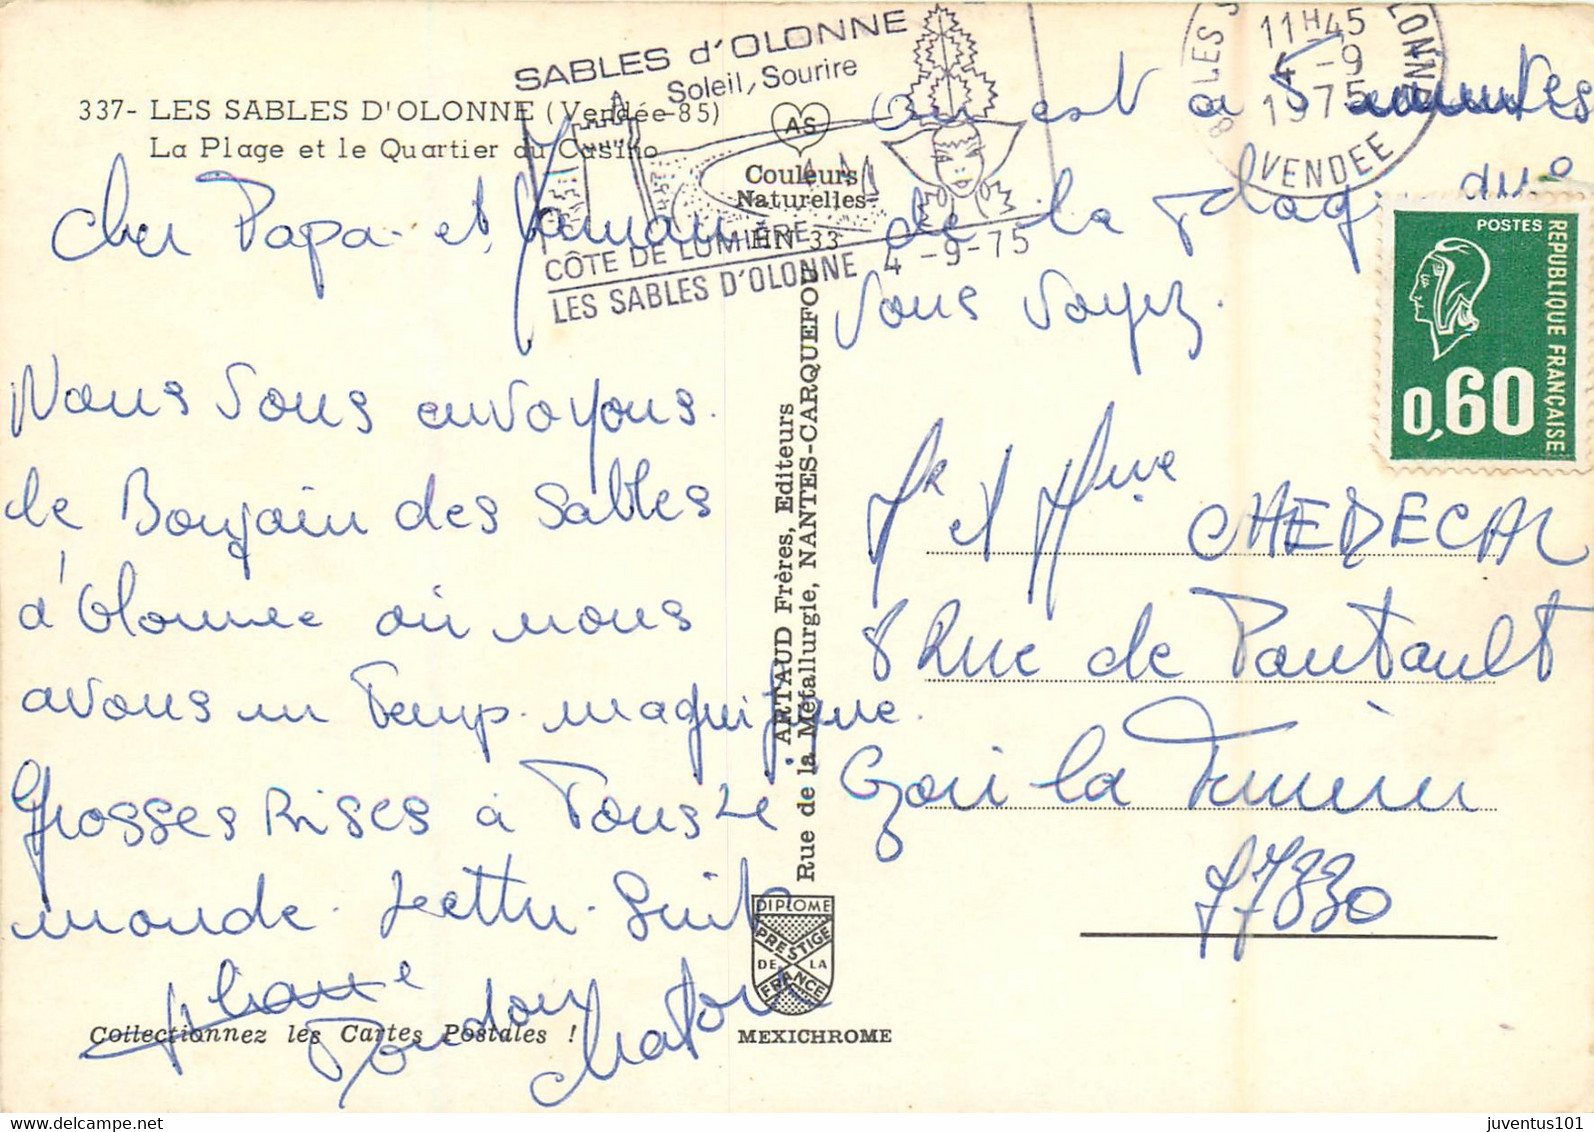 337- LES SABLES D'OLONNE (Vendée-85)
La Plage et le Quartier du Casino
SABLES d'OLONNE
Soleil, Sourire
CÔTE DE LUMIÈRE
LES SABLES D'OLONNE
4 -9-75
AS
Couleurs
Naturelles
HN 33
11H45
4 -9
1975
VENDEE
POSTES
REPUBLIQUE FRANÇAISE
0,60
Cher Papa et Maman
Nous vous envoyons
le Bonjour des Sables
d'Olonne où nous
avons un Temps magnifique.
Grosses Bises à Tous le
monde. Lettre Suit
Doudou
Chaton
on est a 5 minutes
de la plage
vous voyez.
ARTAUD Frères, Editeurs
Rue de la Métallurgie, NANTES-CARQUEFOU
Mr et Mme CHEDECAL
8 Rue de Pontault
Ozoir la Ferrière
77330
DIPLOME
PRESTIGE
DE LA
FRANCE
MEXICHROME
Collectionnez les Cartes Postales !
juventus101